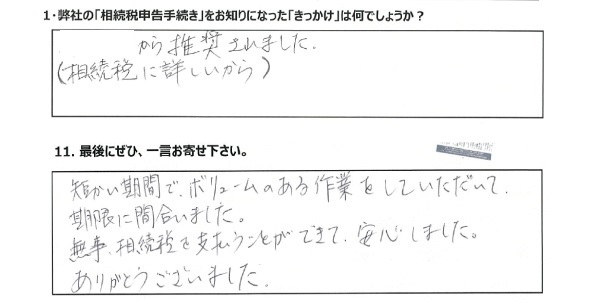 1・弊社の「相続税申告手続き」をお知りになった「きっかけ」は何でしょうか？
から推奨されました.
(相続税に詳しいから)
11. 最後にぜひ、一言お寄せ下さい。
短かい期間で、ボリュームのある作業をしていただいて、
期限に間合いました。
無事、相続税を支払うことができて、安心しました。
ありがとうございました.